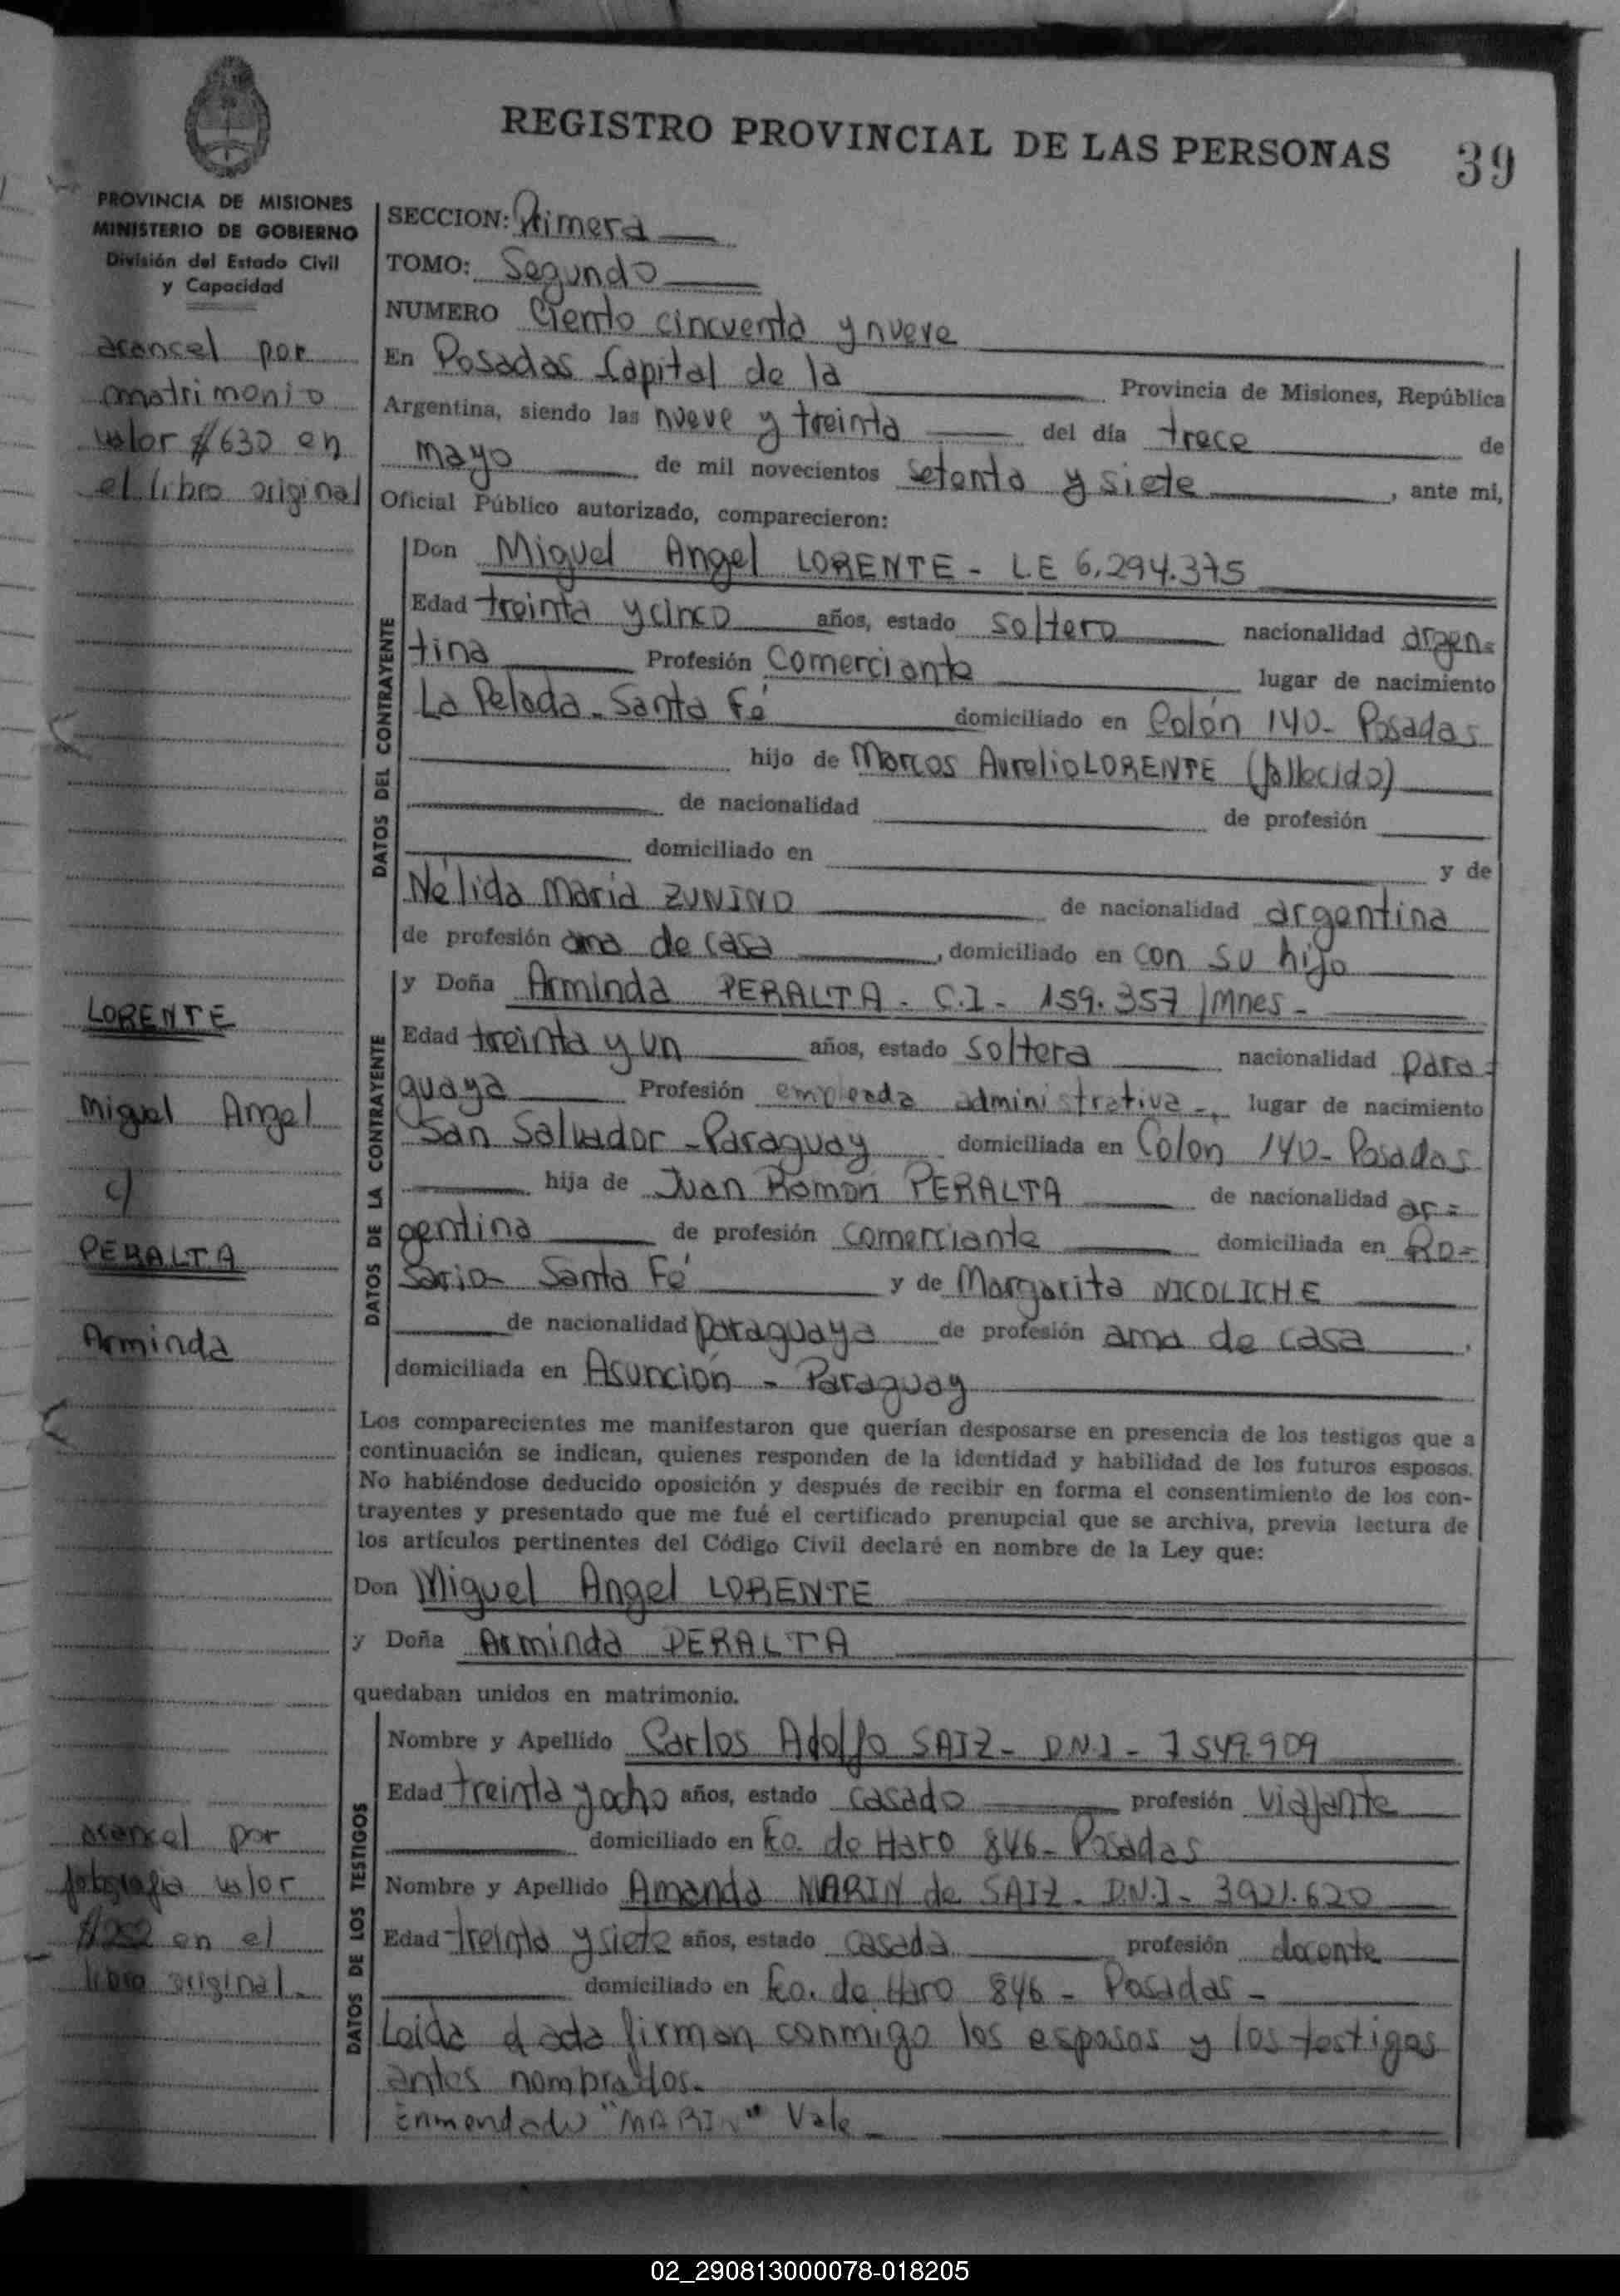 REGISTRO PROVINCIAL DE LAS PERSONAS 39
PROVINCIA DE MISIONES
MINISTERIO DE GOBIERNO
División del Estado Civil
y Capacidad
arancel por
matrimonio
valor $630 en
el libro original
LORENTE
Miguel Angel
c/
PERALTA
Arminda
arancel por
fotografia valor
$252 en el
libro original.
SECCION: Primera
TOMO: Segundo
NUMERO Ciento cincuenta y nueve
En Posadas Capital de la Provincia de Misiones, República
Argentina, siendo las nueve y treinta del día trece de
mayo de mil novecientos setenta y siete, ante mi,
Oficial Público autorizado, comparecieron:
DATOS DEL CONTRAYENTE
Don Miguel Angel LORENTE - L.E 6.294.375
Edad treinta y cinco años, estado soltero nacionalidad argen=
tina Profesión Comerciante lugar de nacimiento
La Pelada - Santa Fé domiciliado en Colón 140 - Posadas
hijo de Marcos Aurelio LORENTE (fallecido)
de nacionalidad de profesión
domiciliado en y de
Nélida María ZUNINO de nacionalidad argentina
de profesión ama de casa, domiciliado en con su hijo
DATOS DE LA CONTRAYENTE
y Doña Arminda PERALTA - C.I - 159.357/Mnes -
Edad treinta y un años, estado soltera nacionalidad para=
guaya Profesión empleada administrativa -, lugar de nacimiento
San Salvador - Paraguay domiciliada en Colon 140 - Posadas
hija de Juan Román PERALTA de nacionalidad ar=
gentina de profesión comerciante domiciliada en Ro=
sario - Santa Fé y de Margarita NICOLICHE
de nacionalidad paraguaya de profesión ama de casa,
domiciliada en Asunción - Paraguay
Los comparecientes me manifestaron que querían desposarse en presencia de los testigos que a
continuación se indican, quienes responden de la identidad y habilidad de los futuros esposos.
No habiéndose deducido oposición y después de recibir en forma el consentimiento de los con-
trayentes y presentado que me fué el certificado prenupcial que se archiva, previa lectura de
los artículos pertinentes del Código Civil declaré en nombre de la Ley que:
Don Miguel Angel LORENTE
y Doña Arminda PERALTA
quedaban unidos en matrimonio.
DATOS DE LOS TESTIGOS
Nombre y Apellido Carlos Adolfo SAIZ - D.N.I - 7549.909
Edad treinta y ocho años, estado casado profesión viajante
domiciliado en Fo. de Haro 846 - Posadas
Nombre y Apellido Amanda MARIN de SAIZ - D.N.I - 3921.620
Edad treinta y siete años, estado casada profesión docente
domiciliado en Fo. de Haro 846 - Posadas -
Leida el acta firman conmigo los esposos y los testigos
antes nombrados.
Enmendado "MARIN" Vale
02_290813000078-018205